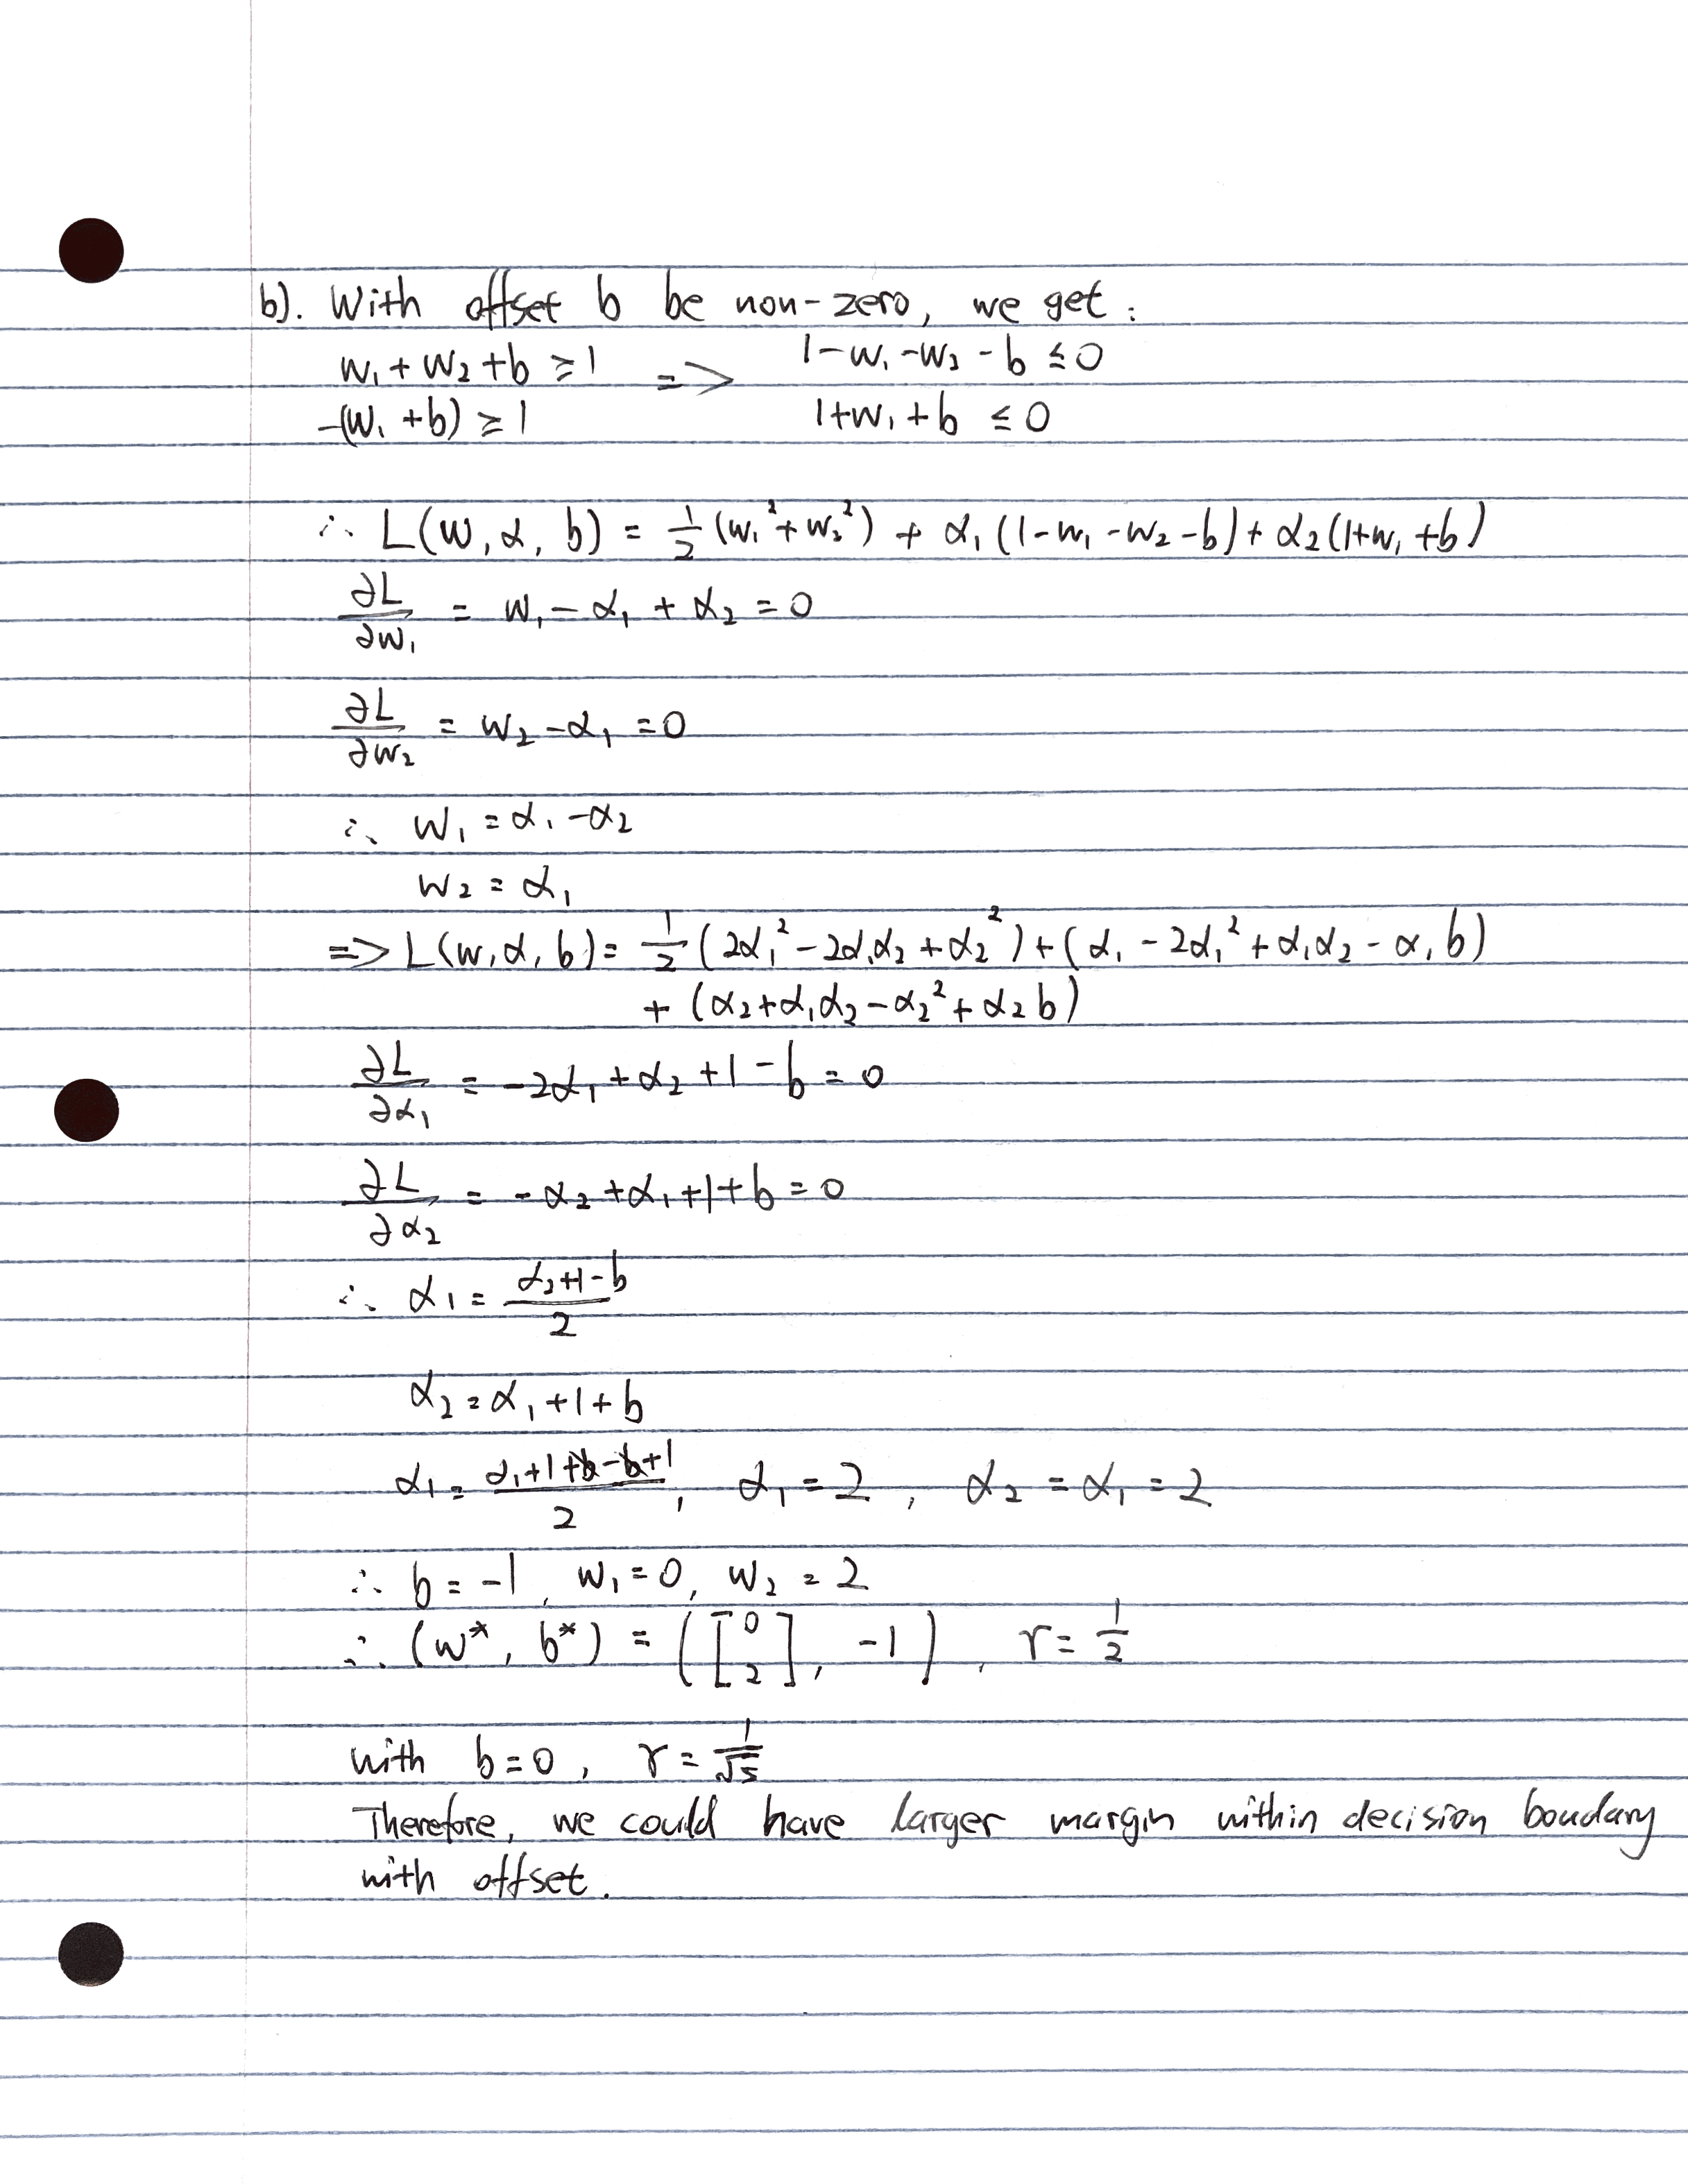 b). With offset b be non-zero, we get:
w₁ + w₂ + b ≥ 1 => 1 - w₁ - w₂ - b ≤ 0
-(w₁ + b) ≥ 1 1 + w₁ + b ≤ 0
∴ L(w, α, b) = 1/2 (w₁² + w₂²) + α₁ (1 - w₁ - w₂ - b) + α₂ (1 + w₁ + b)
∂L/∂w₁ = w₁ - α₁ + α₂ = 0
∂L/∂w₂ = w₂ - α₁ = 0
∴ w₁ = α₁ - α₂
w₂ = α₁
=> L(w, α, b) = 1/2 (2α₁² - 2α₁α₂ + α₂²) + (α₁ - 2α₁² + α₁α₂ - α₁b)
+ (α₂ + α₁α₂ - α₂² + α₂b)
∂L/∂α₁ = -2α₁ + α₂ + 1 - b = 0
∂L/∂α₂ = -α₂ + α₁ + 1 + b = 0
∴ α₁ = (α₂ + 1 - b)/2
α₂ = α₁ + 1 + b
α₁ = (α₁ + 1 + b - b + 1)/2, α₁ = 2, α₂ = α₁ = 2
∴ b = -1, w₁ = 0, w₂ = 2
∴ (w*, b*) = ([0 2], -1), r = 1/2
with b = 0, r = 1/√5
Therefore, we could have larger margin within decision boudary
with offset.